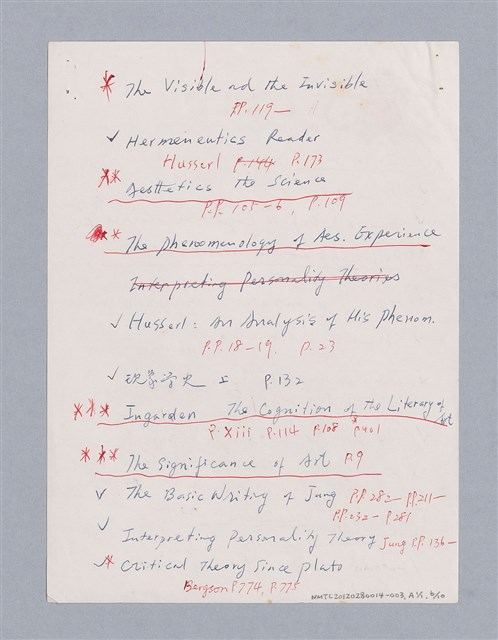 * The Visible and the Invisible
PP. 119—
✓ Hermeneutics Reader
Husserl p.144 P. 173
** Aesthetics the Science
P.P. 105-6, P. 109
* The phenomenology of Aes. Experience
Interpreting Personality Theories
✓ Husserl: An Analysis of His Phenom.
P.P. 18-19. P. 23
✓ 現象學史 上 P. 132
*** Ingarden The Cognition of the Literary of Art
P. Xiii P. 114 P. 108 P401
*** The Significance of Art P. 9
✓ The Basic Writing of Jung P.P. 282— PP. 211—
PP. 232— P 281
✓ Interpreting Personality Theory Jung P.P. 136—
✓* Critical Theory Since plato
Bergson P774, P. 775
NMTL20120280014-003, A⅟₁,